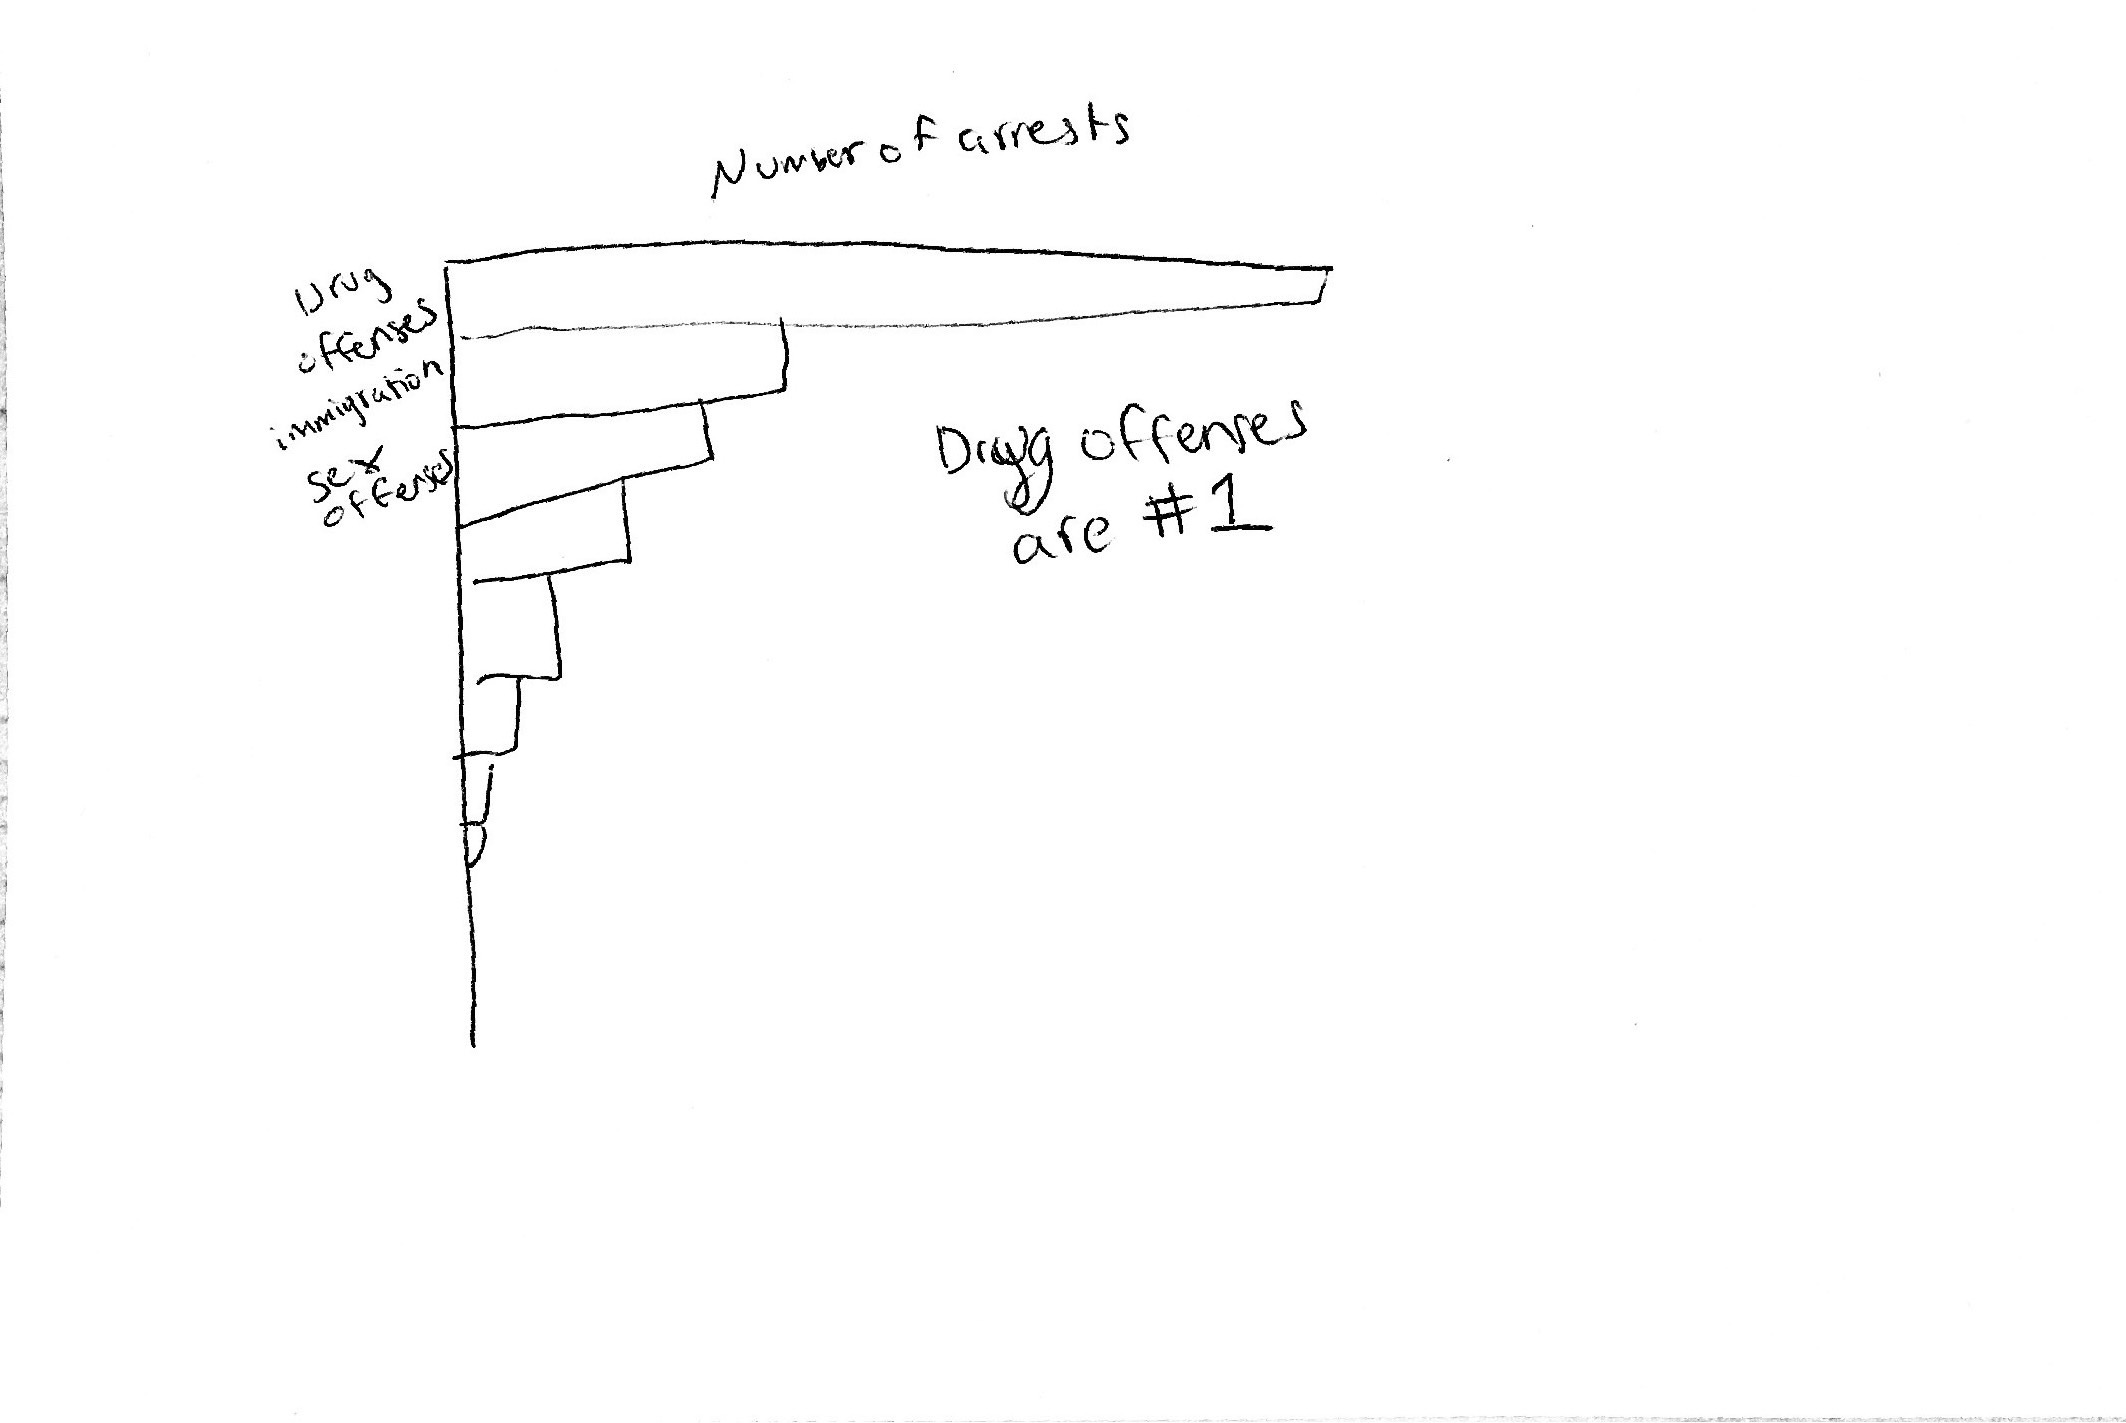 Number of arrests
Drug
offenses
immigration
sex
offenses
Drug offenses
are #1